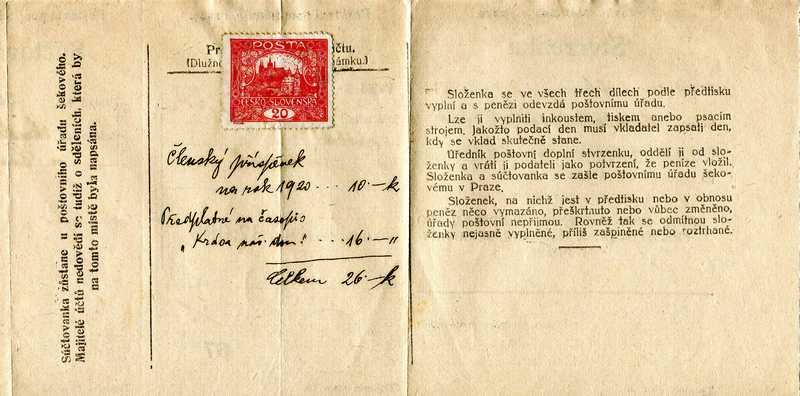 Súčtovanka zůstane u poštovního úřadu šekového.
Majitelé účtů nedovědí se tudíž o sděleních, která by
na tomto místě byla napsána.
Pr
čtu.
(Dlužno
ámku.)
POSTA
ČESKO-SLOVENSKA
20
Členský příspěvek
na rok 1920 ... 10.- k
Předplatné na časopis
" dnů" ... 16.- "
Celkem 26.- k
Složenka se ve všech třech dílech podle předtisku
vyplní a s penězi odevzdá poštovnímu úřadu.
Lze ji vyplniti inkoustem, tiskem anebo psacím
strojem. Jakožto podací den musí vkladatel zapsati den,
kdy se vklad skutečně stane.
Úředník poštovní doplní stvrzenku, oddělí ji od slo-
ženky a vrátí ji podateli jako potvrzení, že peníze vložil.
Složenka a súčtovanka se zašle poštovnímu úřadu šeko-
vému v Praze.
Složenek, na nichž jest v předtisku nebo v obnosu
peněz něco vymazáno, přeškrtnuto nebo vůbec změněno,
úřady poštovní nepřijmou. Rovněž tak se odmítnou slo-
ženky nejasně vyplněné, příliš zašpiněné nebo roztrhané.